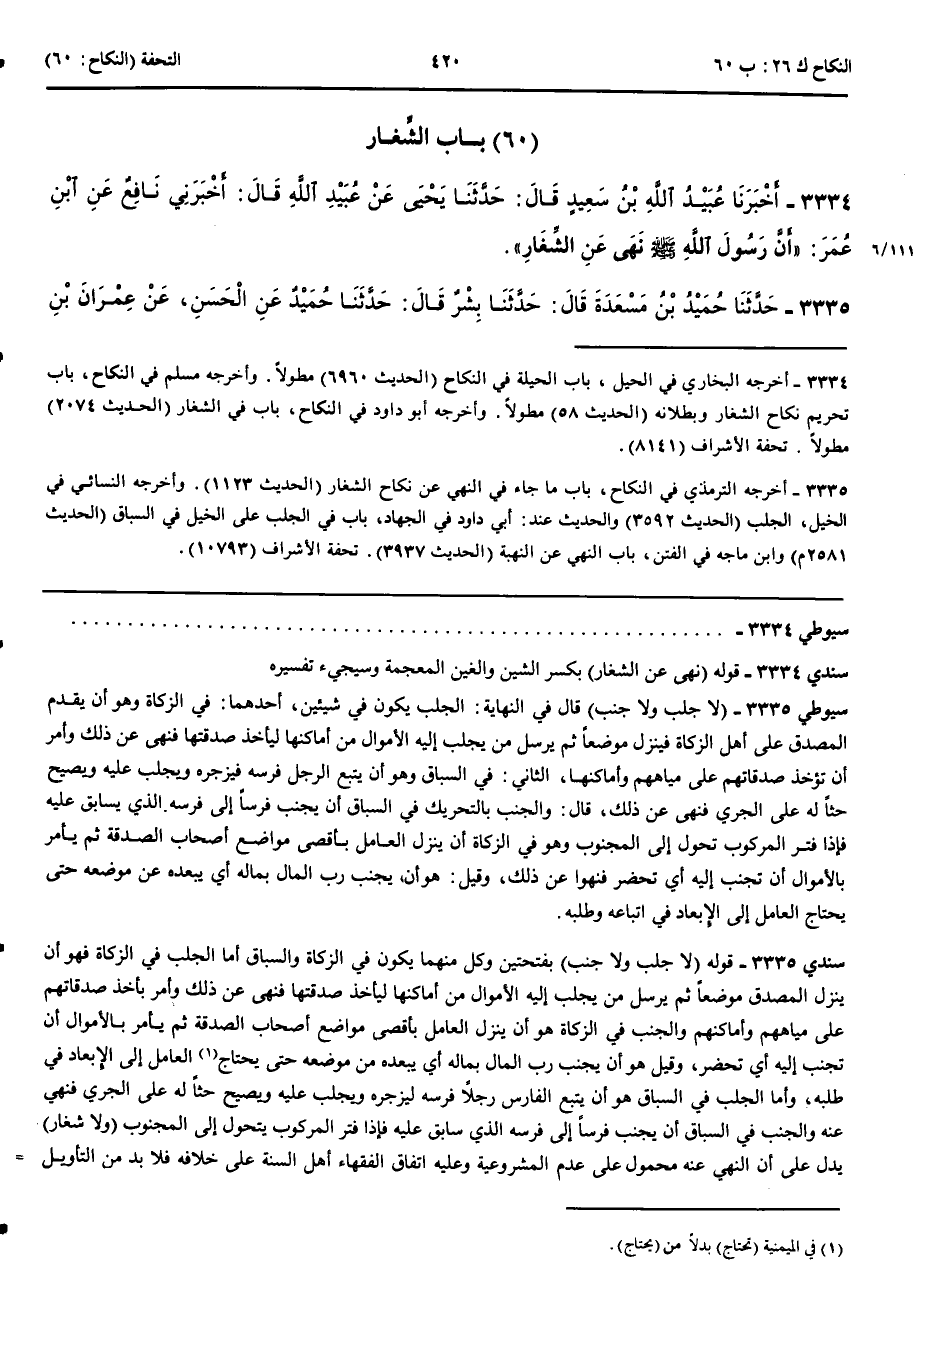 النكاح ك ٢٦: ب ٦٠
٤٢٠
التحفة (النكاح: ٦٠)
(٦٠) بـاب الشِّغـار
٣٣٣٤ ـ أَخْبَرَنَا عُبَيْدُ ٱللَّهِ بْنُ سَعِيدٍ قَالَ: حَدَّثَنَا يَحْيَى عَنْ عُبَيْدِ ٱللَّهِ قَالَ: أَخْبَرَنِي نَافِعٌ عَنِ ٱبْنِ
عُمَرَ: «أَنَّ رَسُولَ ٱللَّهِ ﷺ نَهَى عَنِ الشِّغَارِ».
٦/١١١
٣٣٣٥ ـ حَدَّثَنَا حُمَيْدُ بْنُ مَسْعَدَةَ قَالَ: حَدَّثَنَا بِشْرٌ قَالَ: حَدَّثَنَا حُمَيْدٌ عَنِ الْحَسَنِ، عَنْ عِمْرَانَ بْنِ
٣٣٣٤ ـ أخرجه البخاري في الحيل ، باب الحيلة في النكاح (الحديث ٦٩٦٠) مطولاً. وأخرجه مسلم في النكاح، باب
تحريم نكاح الشغار وبطلانه (الحديث ٥٨) مطولاً. وأخرجه أبو داود في النكاح، باب في الشغار (الحديث ٢٠٧٤)
مطولاً . تحفة الأشراف (٨١٤١).
٣٣٣٥ ـ أخرجه الترمذي في النكاح، باب ما جاء في النهي عن نكاح الشغار (الحديث ١١٢٣). وأخرجه النسائي في
الخيل، الجلب (الحديث ٣٥٩٢) والحديث عند: أبي داود في الجهاد، باب في الجلب على الخيل في السباق (الحديث
٢٥٨١م) وابن ماجه في الفتن، باب النهي عن النهبة (الحديث ٣٩٣٧). تحفة الأشراف (١٠٧٩٣).
سيوطي ٣٣٣٤ ـ . . . . . . . . . . . . . . . . . . . . . . . . . . . . . . . . . . . . . . . . . . . . . . . . . . . . . . . . . .
سندي ٣٣٣٤ ـ قوله (نهى عن الشغار) بكسر الشين والغين المعجمة وسيجيء تفسيره
سيوطي ٣٣٣٥ ـ (لا جلب ولا جنب) قال في النهاية: الجلب يكون في شيئين، أحدهما: في الزكاة وهو أن يقدم
المصدق على أهل الزكاة فينزل موضعاً ثم يرسل من يجلب إليه الأموال من أماكنها ليأخذ صدقتها فنهى عن ذلك وأمر
أن تؤخذ صدقاتهم على مياههم وأماكنهـا، الثاني: في السباق وهو أن يتبع الرجل فرسه فيزجره ويجلب عليه ويصيح
حثاً له على الجري فنهى عن ذلك، قال: والجنب بالتحريك في السباق أن يجنب فرساً إلى فرسه الذي يسابق عليه
فإذا فتر المركوب تحول إلى المجنوب وهو في الزكاة أن ينزل العامل بأقصى مواضع أصحاب الصدقة ثم يأمر
بالأموال أن تجنب إليه أي تحضر فنهوا عن ذلك، وقيل: هو أن يجنب رب المال بماله أي يبعده عن موضعه حتى
يحتاج العامل إلى الإبعاد في اتباعه وطلبه.
سندي ٣٣٣٥ ـ قوله (لا جلب ولا جنب) بفتحتين وكل منهما يكون في الزكاة والسباق أما الجلب في الزكاة فهو أن
ينزل المصدق موضعاً ثم يرسل من يجلب إليه الأموال من أماكنها ليأخذ صدقتها فنهى عن ذلك وأمر بأخذ صدقاتهم
على مياههم وأماكنهم والجنب في الزكاة هو أن ينزل العامل بأقصى مواضع أصحاب الصدقة ثم يأمر بالأموال أن
تجنب إليه أي تحضر، وقيل هو أن يجنب رب المال بماله أي يبعده من موضعه حتى يحتاج(١) العامل إلى الإبعاد في
طلبه، وأما الجلب في السباق هو أن يتبع الفارس رجلاً فرسه ليزجره ويجلب عليه ويصيح حثاً له على الجري فنهي
عنه والجنب في السباق أن يجنب فرساً إلى فرسه الذي سابق عليه فإذا فتر المركوب يتحول إلى المجنوب (ولا شغار)
يدل على أن النهي عنه محمول على عدم المشروعية وعليه اتفاق الفقهاء أهل السنة على خلافه فلا بد من التأويل =
(١) في الميمنية (تحتاج) بدلاً من (يحتاج).